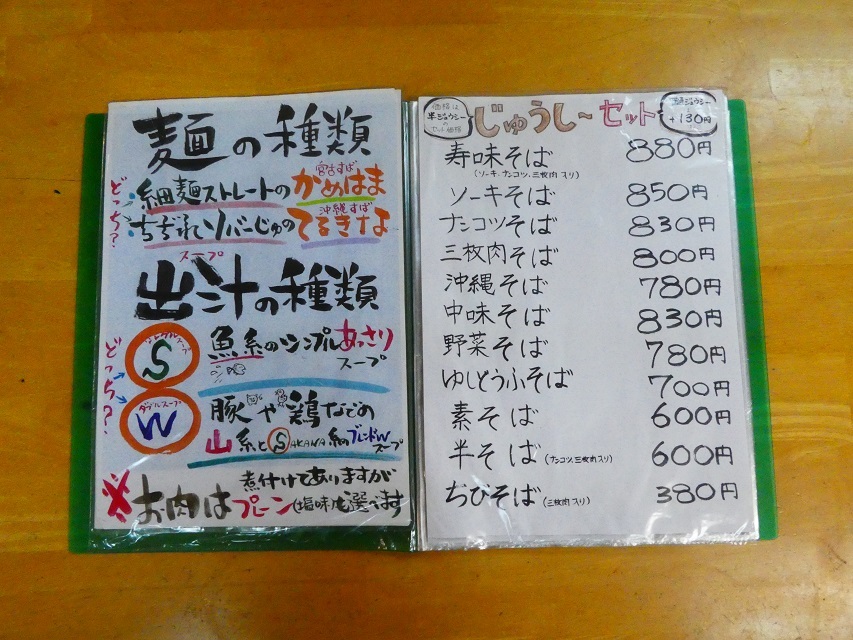 麺の種類
どっち?
細麺ストレートのかめはま
宮古すば
ちぢれソバーじゅのてるきな
沖縄すば
スープ
出汁の種類
どっち?
S
魚系のシンプルあっさり
スープ
ダブルスープ
W
豚や鶏などの
山系とSAKANA系のブレンドW
スープ
※お肉は煮付けてありますが
プレーン(塩味)も選べます
価格は
半ジューシー
の
セット価格
じゅうし〜セット
+130円
寿味そば 880円
(ソーキ、ナンコツ、三枚肉入り)
ソーキそば 850円
ナンコツそば 830円
三枚肉そば 800円
沖縄そば 780円
中味そば 830円
野菜そば 780円
ゆしどうふそば 700円
素そば 600円
半そば(ナンコツ、三枚肉入り) 600円
ちびそば(三枚肉入り) 380円